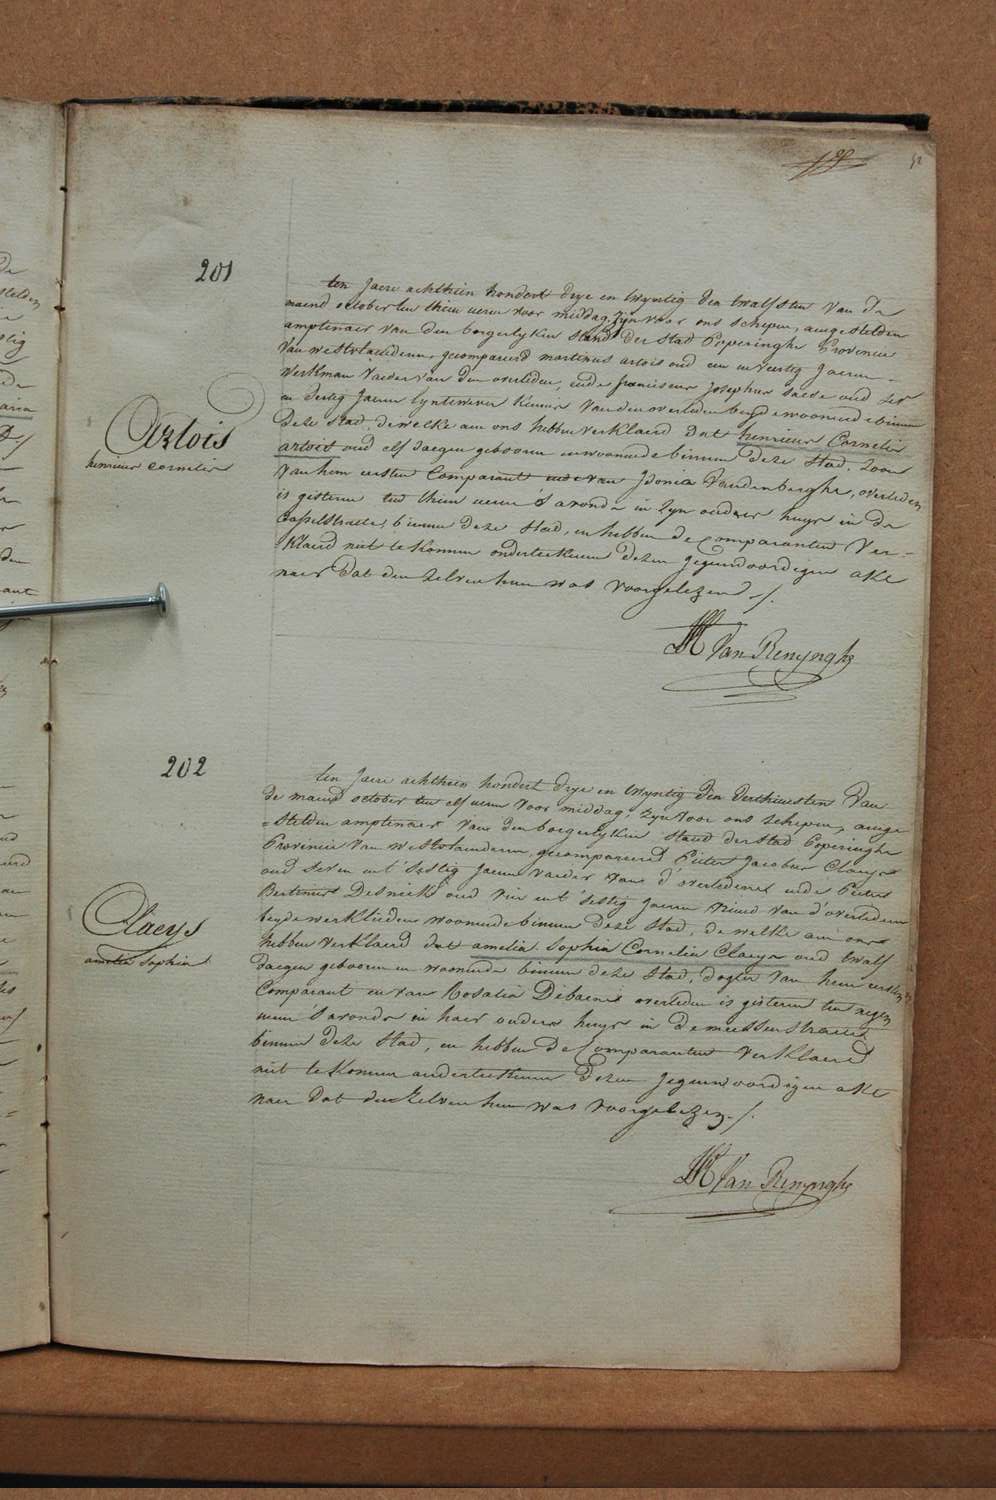 52
201
Artois
henricus cornelis
ten jaere achthien hondert drye en twyntig den twalfsten van de
maend october ten thien ueren voor middag, zyn voor ons schepen, aengestelden
amptenaer van den borgerlyken stand der stad Poperinghe Provencie
van westvlaenderen, gecompareerd martinus artois oud een en veertig jaeren
werkman vaeder van den overleden, ende franciscus josephus
en dertig jaeren lyntwever kennis van den overleden beyde woonende binnen
deze stad, de welke aen ons hebben verklaerd dat henricus Cornelis
artois oud elf daegen geboren en woonende binnen deze stad, zoon
van hem eersten Comparant ende van Idonia Vandenberghe, overleden
is gisteren ten thien ueren 's avonds in zyn ouders huys in de
Casselstraete, binnen deze stad, en hebben de Comparanten ver-
klaerd niet te konnen onderteekenen dezen jegenwoordigen akt
naer dat den zelven hun was voorgelezen ./.
Van Renynghe
202
Claeys
amelia Sophia
ten jaere achthien hondert drye en twyntig den derthiensten van
de maend october ten elf ueren voor middag, zyn voor ons schepen, aenge
=stelden amptenaer van den borgerlyken stand der stad Poperinghe
Provencie van westvlaenderen, gecompareerd Pieter Jacobus Claeys
oud seven en t' sestig jaeren vaeder van d'overledene ende Pieter
Bertinus oud vier en t' sestig jaeren vriend van d'overledene
beyde werklieden woonende binnen deze stad, de welke aen ons
hebben verklaerd dat amelia Sophia Cornelia Claeys oud twalf
daegen geboren en woonende binnen deze stad, dogter van hem eersten
Comparant en van Rosalia overleden is gisteren ten negen
ueren 's avonds in haer ouders huys in de meessenstraete
binnen deze stad, en hebben de Comparanten verklaerd
niet te konnen onderteekenen dezen jegenwoordigen akt
naer dat den zelven hun was voorgelezen ./.
Van Renynghe